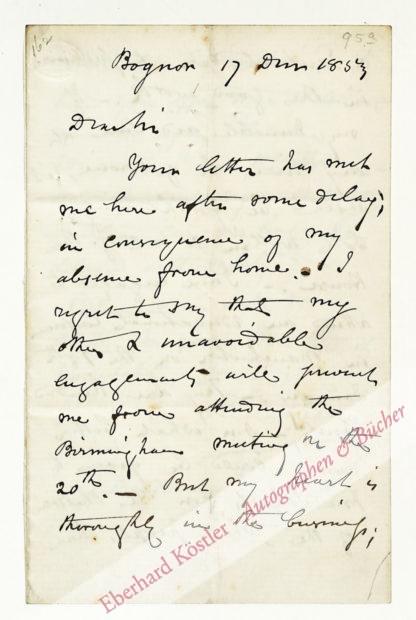 162
95a
Bognor 17 Decr 1853
Dear Sir
Your letter has met
me here after some delay,
in consequence of my
absence from home. I
regret to say that my
other & unavoidable
engagements will prevent
me from attending the
Birmingham meeting on the
20th. — But my heart is
thoroughly in the business;
Eberhard Köstler Autographen & Bücher